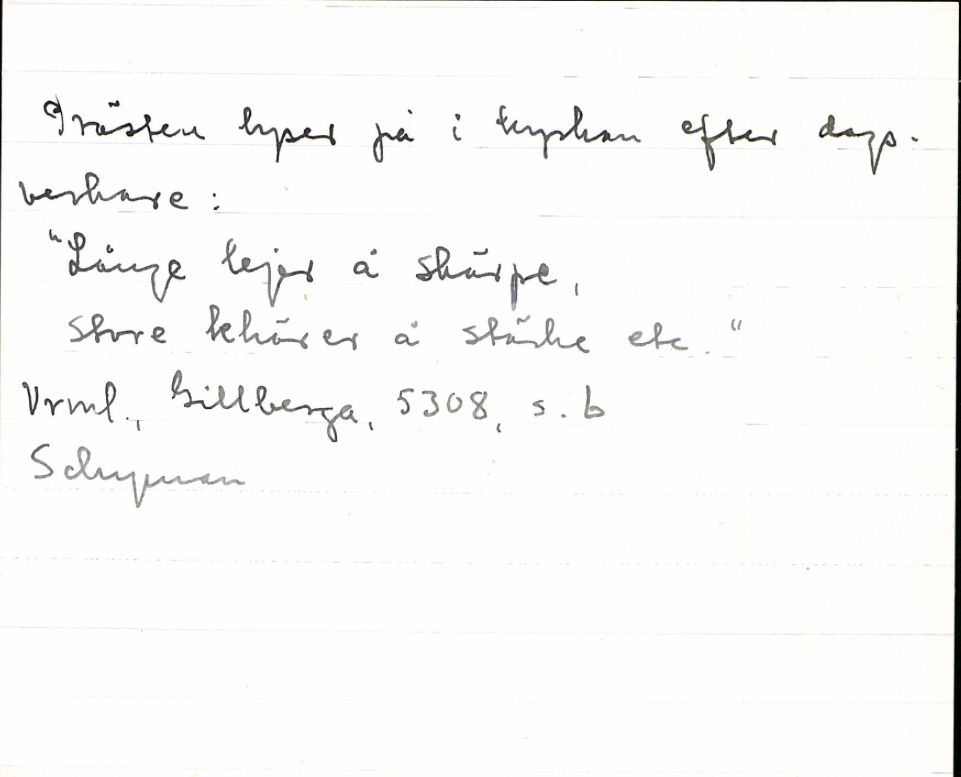 Prästen lyser på i kyrkan efter dags-
verkare:
"Långe lejer å skärpe,
store khärer å stärke etc."
Vrml., Gillberga, 5308, s. 6
Schyman